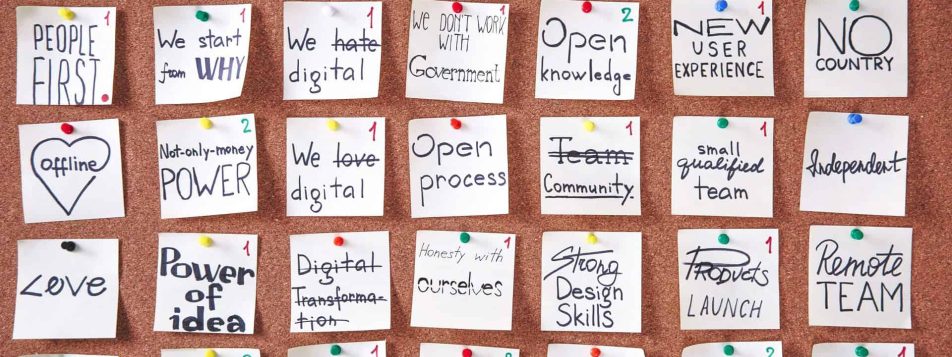 PEOPLE
FIRST
1
We start
from WHY
1
We hate
digital
1
We DON'T WORK
WITH
Government
1
Open
knowledge
2
NEW
USER
EXPERIENCE
1
NO
COUNTRY
offline
Not-only-money
POWER
2
We love
digital
1
Open
process
Team
Community.
1
small
qualified
team
1
Independent
Love
Power
of
idea
1
Digital
Transforma-
tion
Honesty with
ourselves
1
Strong
Design
Skills
Products
LAUNCH
1
Remote
TEAM
2
1
1